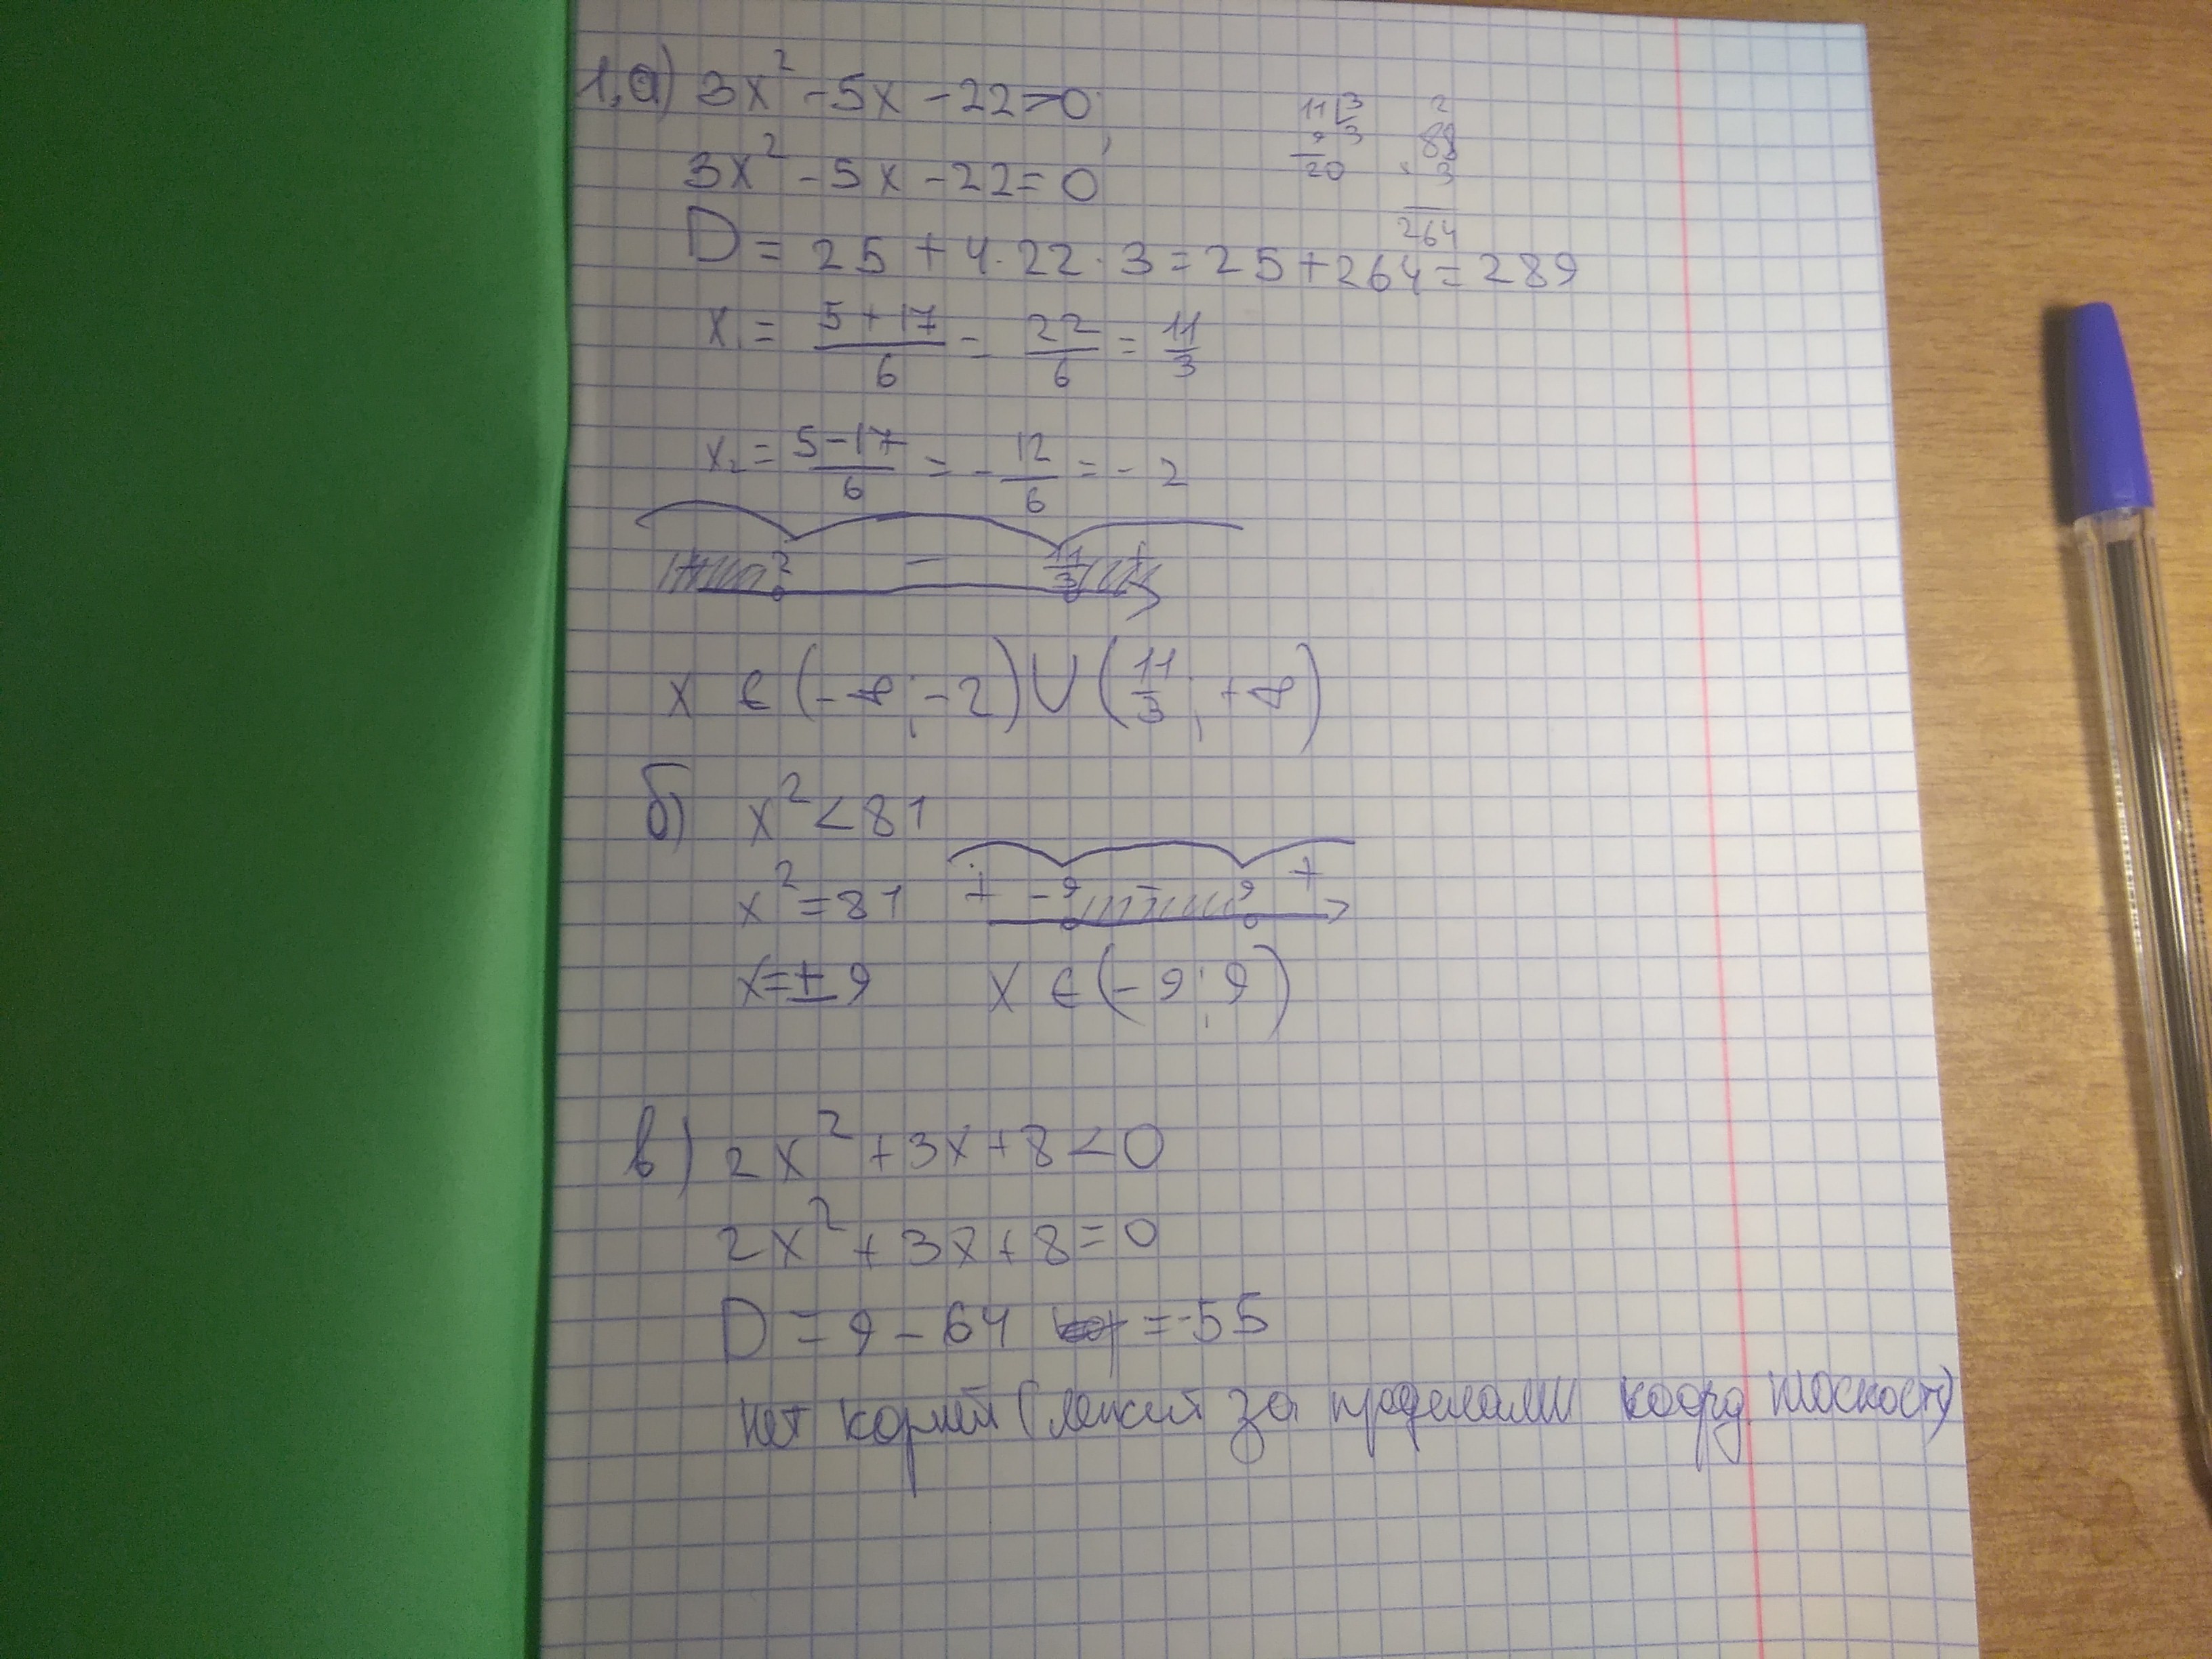 1.а) 3x² - 5x - 22 > 0;
3x² - 5x - 22 = 0
D = 25 + 4·22·3 = 25 + 264 = 289
x₁ = 5+17/6 = 22/6 = 11/3
x₂ = 5-17/6 = -12/6 = -2
+ -2 - 11/3 +
x ∈ (-∞; -2) ∪ (11/3; +∞)
б) x² < 81
x² = 81
+ -9 - 9 +
x = ±9
x ∈ (-9; 9)
в) 2x² + 3x + 8 < 0
2x² + 3x + 8 = 0
D = 9 - 64 = -55
нет корней (лежит за пределами коорд. плоскости)
11 3
9 3
20
2
88
3
264